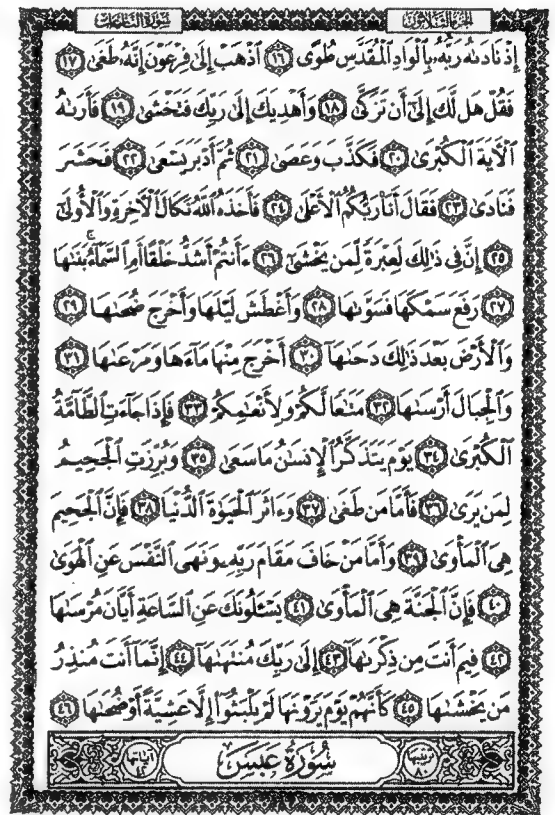 الجزء الثلاثون سورة النازعات
إِذْ نَادَىٰهُ رَبُّهُۥ بِٱلْوَادِ ٱلْمُقَدَّسِ طُوًى ١٦ ٱذْهَبْ إِلَىٰ فِرْعَوْنَ إِنَّهُۥ طَغَىٰ ١٧
فَقُلْ هَل لَّكَ إِلَىٰٓ أَن تَزَكَّىٰ ١٨ وَأَهْدِيَكَ إِلَىٰ رَبِّكَ فَتَخْشَىٰ ١٩ فَأَرَىٰهُ
ٱلْأَيَةَ ٱلْكُبْرَىٰ ٢٠ فَكَذَّبَ وَعَصَىٰ ٢١ ثُمَّ أَدْبَرَ يَسْعَىٰ ٢٢ فَحَشَرَ
فَنَادَىٰ ٢٣ فَقَالَ أَنَا۠ رَبُّكُمُ ٱلْأَعْلَىٰ ٢٤ فَأَخَذَهُ ٱللَّهُ نَكَالَ ٱلْأَخِرَةِ وَٱلْأُولَىٰٓ
٢٥ إِنَّ فِى ذَٰلِكَ لَعِبْرَةً لِّمَن يَخْشَىٰٓ ٢٦ ءَأَنتُمْ أَشَدُّ خَلْقًا أَمِ ٱلسَّمَآءُ ۚ بَنَىٰهَا
٢٧ رَفَعَ سَمْكَهَا فَسَوَّىٰهَا ٢٨ وَأَغْطَشَ لَيْلَهَا وَأَخْرَجَ ضُحَىٰهَا ٢٩
وَٱلْأَرْضَ بَعْدَ ذَٰلِكَ دَحَىٰهَآ ٣٠ أَخْرَجَ مِنْهَا مَآءَهَا وَمَرْعَىٰهَا ٣١
وَٱلْجِبَالَ أَرْسَىٰهَا ٣٢ مَتَٰعًا لَّكُمْ وَلِأَنْعَٰمِكُمْ ٣٣ فَإِذَا جَآءَتِ ٱلطَّآمَّةُ
ٱلْكُبْرَىٰ ٣٤ يَوْمَ يَتَذَكَّرُ ٱلْإِنسَٰنُ مَا سَعَىٰ ٣٥ وَبُرِّزَتِ ٱلْجَحِيمُ
لِمَن يَرَىٰ ٣٦ فَأَمَّا مَن طَغَىٰ ٣٧ وَءَاثَرَ ٱلْحَيَوٰةَ ٱلدُّنْيَا ٣٨ فَإِنَّ ٱلْجَحِيمَ
هِىَ ٱلْمَأْوَىٰ ٣٩ وَأَمَّا مَنْ خَافَ مَقَامَ رَبِّهِۦ وَنَهَى ٱلنَّفْسَ عَنِ ٱلْهَوَىٰ
٤٠ فَإِنَّ ٱلْجَنَّةَ هِىَ ٱلْمَأْوَىٰ ٤١ يَسْـَٔلُونَكَ عَنِ ٱلسَّاعَةِ أَيَّانَ مُرْسَىٰهَا
٤٢ فِيمَ أَنتَ مِن ذِكْرَىٰهَآ ٤٣ إِلَىٰ رَبِّكَ مُنتَهَىٰهَآ ٤٤ إِنَّمَآ أَنتَ مُنذِرُ
مَن يَخْشَىٰهَا ٤٥ كَأَنَّهُمْ يَوْمَ يَرَوْنَهَا لَمْ يَلْبَثُوٓا۟ إِلَّا عَشِيَّةً أَوْ ضُحَىٰهَا ٤٦
ترتيبها ٨٠ سُورَةُ عَبَسَ آياتها ٤٢